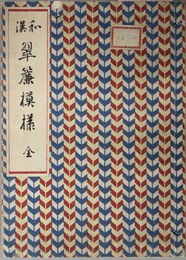 和漢
翠簾模様 全